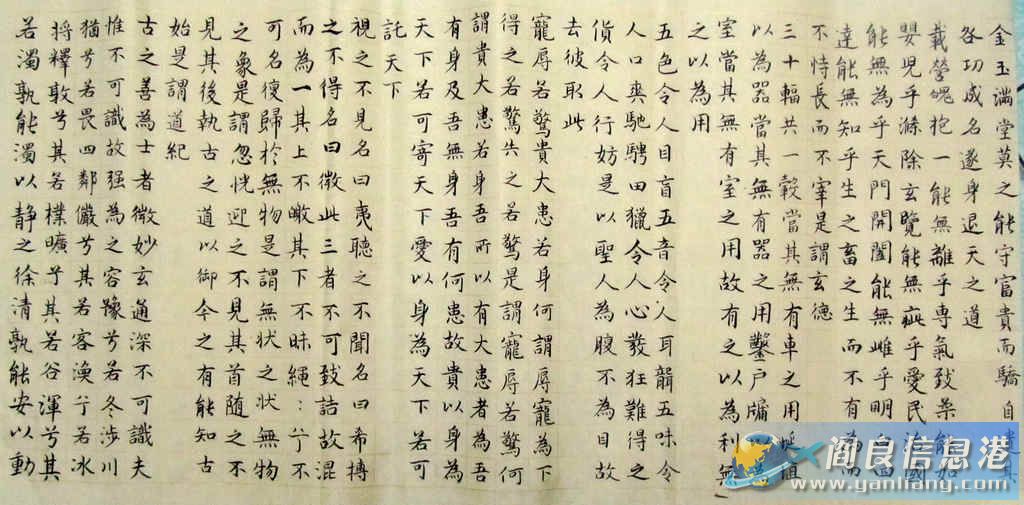 金玉滿堂莫之能守富貴而驕自遺其
咎功成名遂身退天之道
載營魄抱一能無離乎專氣致柔能如
嬰兒乎滌除玄覽能無疵乎愛民國
能無為乎天門開闔能無雌乎明白四
達能無知乎生之畜之生而不有為而
不恃長而不宰是謂玄德
三十輻共一轂當其無有車之用埏埴
以為器當其無有器之用鑿戶牖以為
室當其無有室之用故有之以為利無
之以為用
五色令人目盲五音令人耳聾五味令
人口爽馳騁田獵令人心發狂難得之
貨令人行妨是以聖人為腹不為目故
去彼取此
寵辱若驚貴大患若身何謂辱寵為下
得之若驚失之若驚是謂寵辱若驚何
謂貴大患若身吾所以有大患者為吾
有身及吾無身吾有何患故貴以身為
天下若可寄天下愛以身為天下若可
託天下
視之不見名曰夷聽之不聞名曰希搏
之不得名曰微此三者不可致詰故混
而為一其上不皦其下不昧繩:兮不
可名復歸於無物是謂無狀之狀無物
之象是謂忽恍迎之不見其首随之不
見其後執古之道以御今之有能知古
始是謂道紀
古之善為士者微妙玄通深不可識夫
惟不可識故强為之容豫兮若冬涉川
猶兮若畏四鄰儼兮其若客渙兮若冰
將釋敦兮其若樸曠兮其若谷渾兮其
若濁孰能濁以静之徐清孰能安以動
阎良信息港
www.yanliang.com